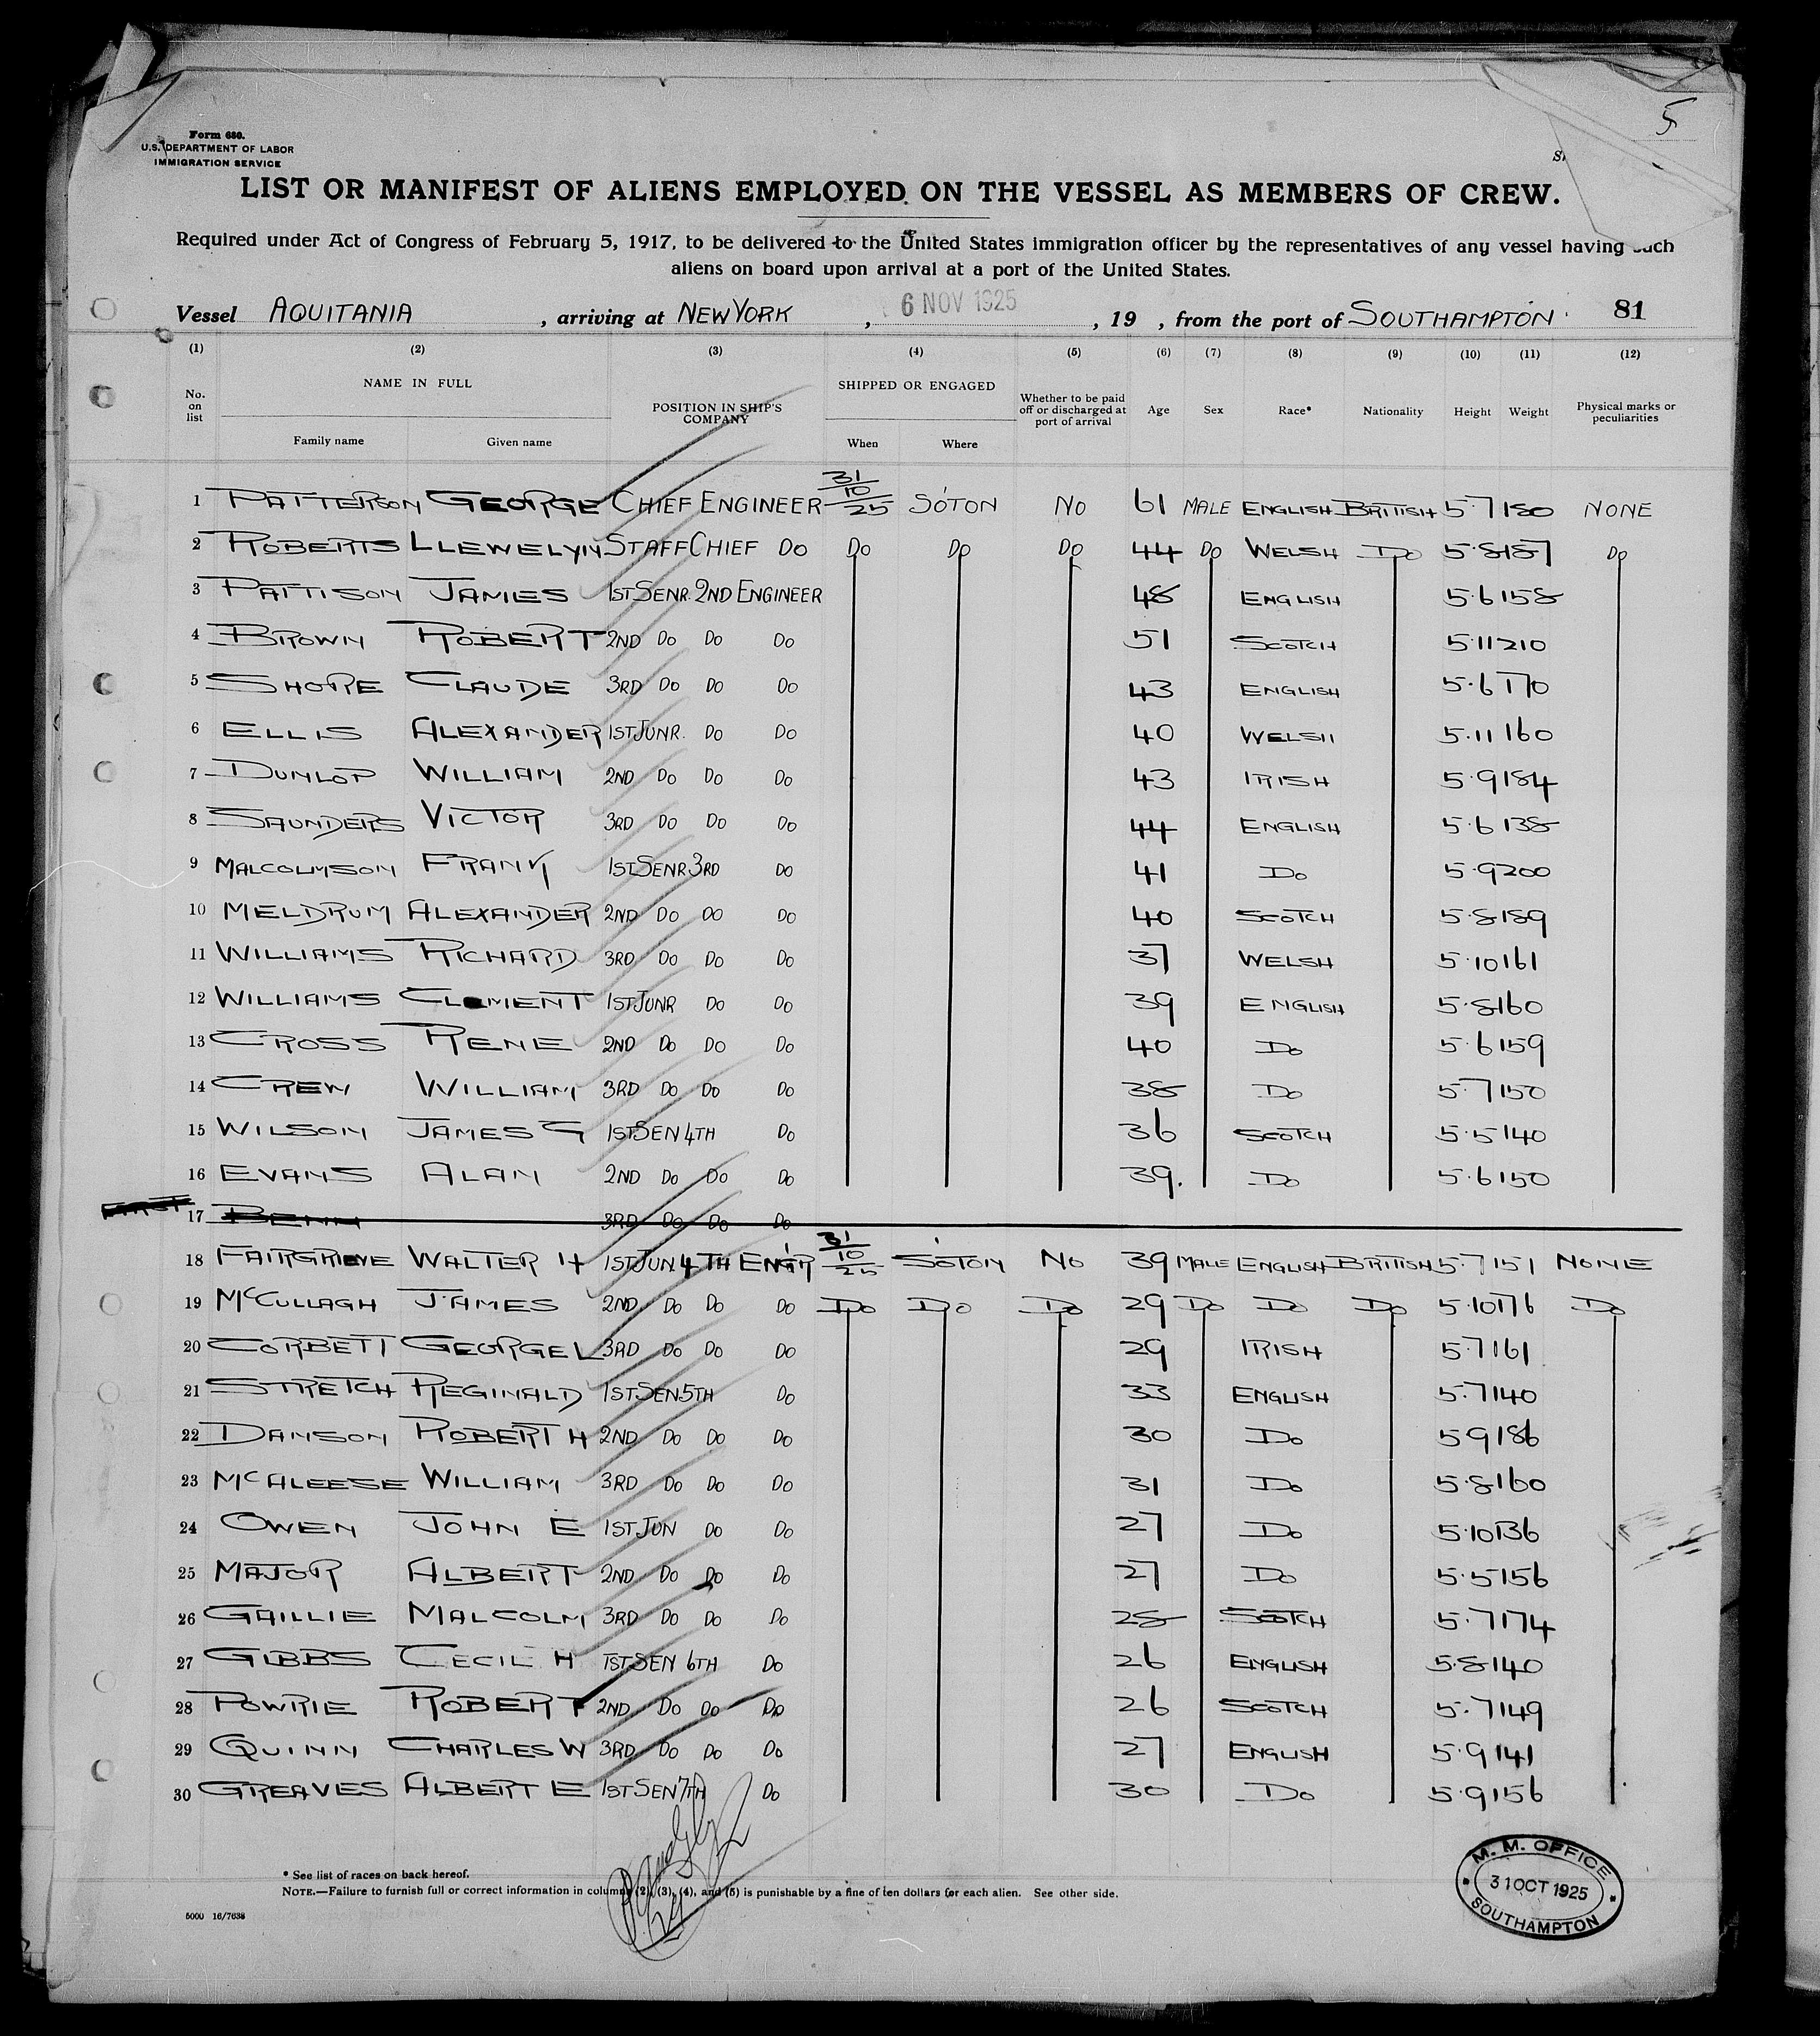 5
Form 680.
U.S. DEPARTMENT OF LABOR
IMMIGRATION SERVICE
LIST OR MANIFEST OF ALIENS EMPLOYED ON THE VESSEL AS MEMBERS OF CREW.
Required under Act of Congress of February 5, 1917, to be delivered to the United States immigration officer by the representatives of any vessel having such
aliens on board upon arrival at a port of the United States.
Vessel AQUITANIA, arriving at NEW YORK, 6 NOV 1925, 19 , from the port of SOUTHAMPTON 81
(1) (2) (3) (4) (5) (6) (7) (8) (9) (10) (11) (12)
No. on list NAME IN FULL Family name Given name POSITION IN SHIP'S COMPANY SHIPPED OR ENGAGED When Where Whether to be paid off or discharged at port of arrival Age Sex Race* Nationality Height Weight Physical marks or peculiarities
1 PATTERSON GEORGE CHIEF ENGINEER 31/10/25 SO'TON NO 61 MALE ENGLISH BRITISH 5.7 180 NONE
2 ROBERTS LLEWELYN STAFF CHIEF DO DO DO DO 44 DO WELSH DO 5.8 187 DO
3 PATTISON JAMES 1ST SENR. 2ND ENGINEER 48 ENGLISH 5.6 158
4 BROWN ROBERT 2ND DO DO DO 51 SCOTCH 5.11 210
5 SHORE CLAUDE 3RD DO DO DO 43 ENGLISH 5.6 170
6 ELLIS ALEXANDER 1ST JUNR. DO DO 40 WELSH 5.11 160
7 DUNLOP WILLIAM 2ND DO DO DO 43 IRISH 5.9 184
8 SAUNDERS VICTOR 3RD DO DO DO 44 ENGLISH 5.6 138
9 MALCOLMSON FRANK 1ST SENR 3RD DO 41 DO 5.9 200
10 MELDRUM ALEXANDER 2ND DO DO DO 40 SCOTCH 5.8 189
11 WILLIAMS RICHARD 3RD DO DO DO 37 WELSH 5.10 161
12 WILLIAMS CLEMENT 1ST JUNR DO DO 39 ENGLISH 5.8 160
13 CROSS RENE 2ND DO DO DO 40 DO 5.6 159
14 CREW WILLIAM 3RD DO DO DO 38 DO 5.7 150
15 WILSON JAMES G 1ST SEN 4TH DO 36 SCOTCH 5.5 140
16 EVANS ALAN 2ND DO DO DO 39. DO 5.6 150
17 BENN 3RD DO DO DO
18 FAIRGRIEVE WALTER H 1ST JUN 4TH ENG'R 31/10/25 SO'TON NO 39 MALE ENGLISH BRITISH 5.7 151 NONE
19 McCULLAGH JAMES 2ND DO DO DO DO DO DO 29 DO DO DO 5.10 176 DO
20 CORBETT GEORGE L 3RD DO DO DO 29 IRISH 5.7 161
21 STRETCH REGINALD 1ST SEN 5TH DO 33 ENGLISH 5.7 140
22 DAMSON ROBERT H 2ND DO DO DO 30 DO 5.9 186
23 McALEESE WILLIAM 3RD DO DO DO 31 DO 5.8 160
24 OWEN JOHN E 1ST JUN DO DO 27 DO 5.10 136
25 MAJOR ALBERT 2ND DO DO DO 27 DO 5.5 156
26 GAILLIE MALCOLM 3RD DO DO DO 28 SCOTCH 5.7 174
27 GIBBS CECIL H 1ST SEN 6TH DO 26 ENGLISH 5.8 140
28 POWRIE ROBERT 2ND DO DO DO 26 SCOTCH 5.7 149
29 QUINN CHARLES W 3RD DO DO DO 27 ENGLISH 5.9 141
30 GREAVES ALBERT E 1ST SEN 7TH DO 30 DO 5.9 156
* See list of races on back hereof.
NOTE.—Failure to furnish full or correct information in columns (2), (3), (4), and (5) is punishable by a fine of ten dollars for each alien. See other side.
5000 16/7638
M. M. OFFICE
31 OCT 1925
SOUTHAMPTON